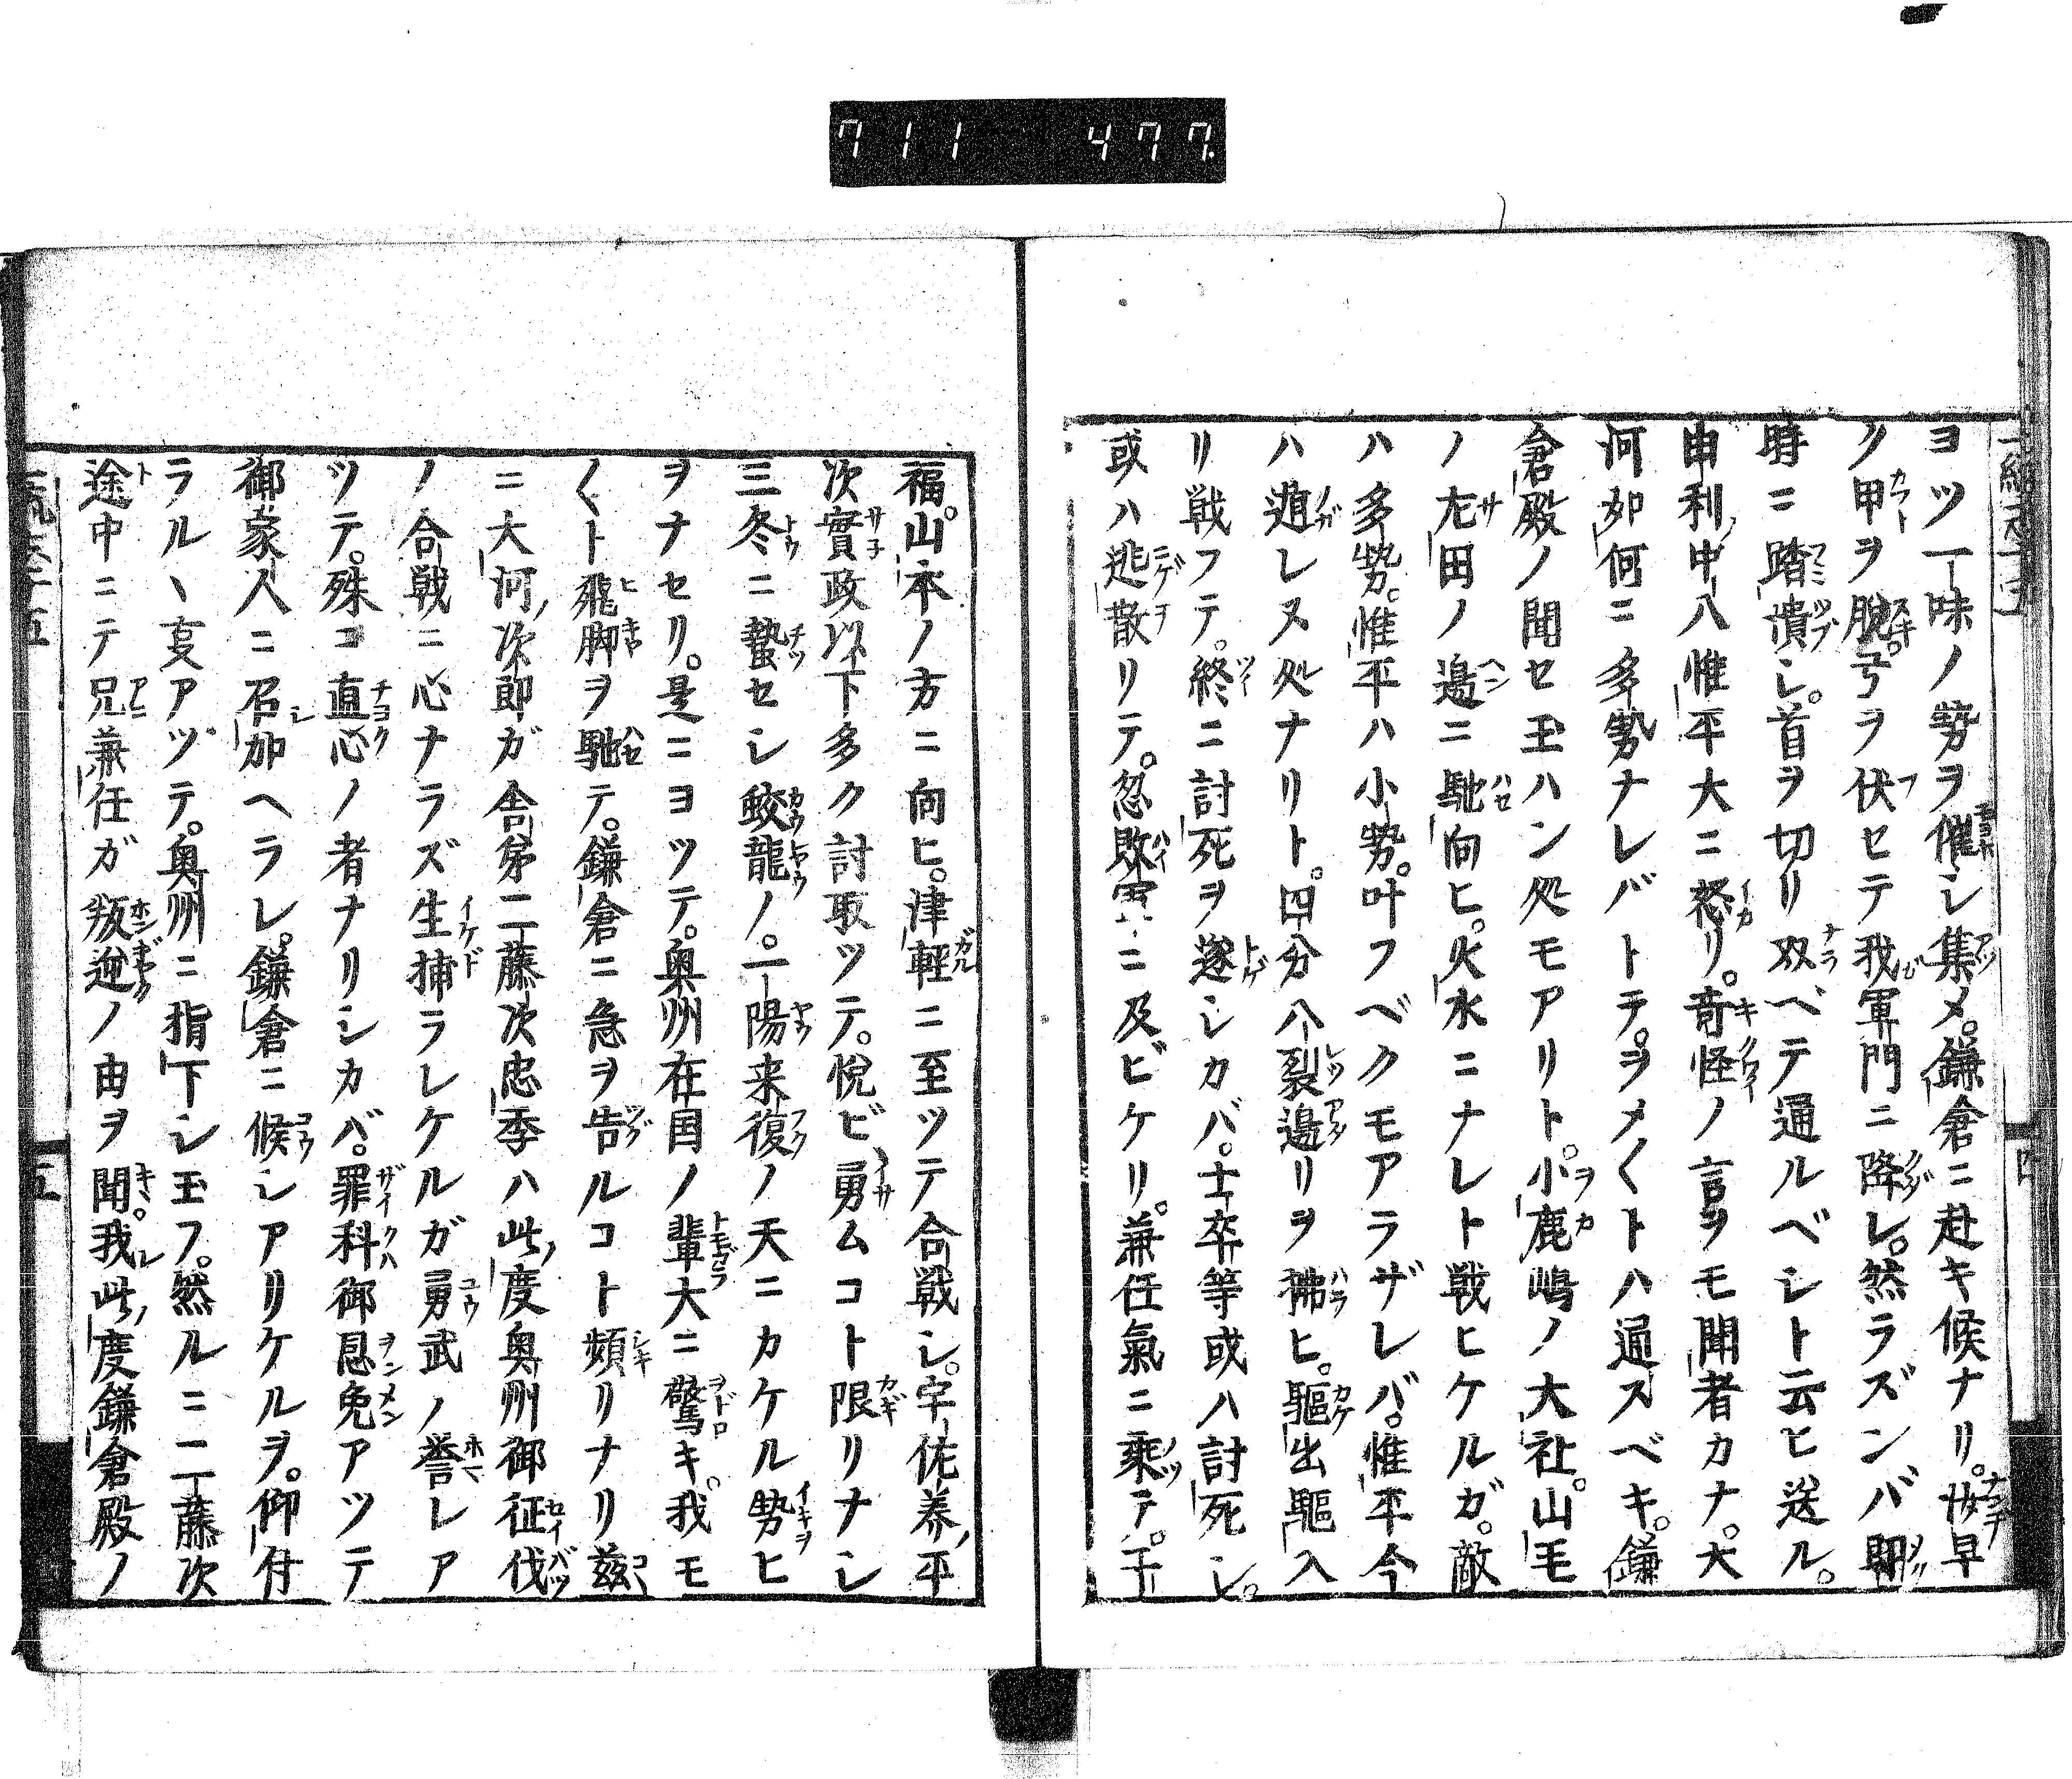 711 477.
ヨツ一味ノ勢ヲ催シ集メ。鎌倉ニ赴キ候ナリ。汝早
ク甲ヲ脱。弓ヲ伏セテ我軍門ニ降レ。然ラズンバ即
時ニ踏潰シ。首ヲ切リ双ベテ通ルベシト云ヒ送ル。
由利中八惟平大ニ怒リ。奇怪ノ言ヲモ聞者カナ。大
河如何ニ多勢ナレバトテ。ヲメ〱トハ通スベキ。鎌
倉殿ノ聞セ玉ハン処モアリト。小鹿嶋ノ大社。山毛
ノ左田ノ邉ニ馳向ヒ。火水ニナレト戦ヒケルガ。敵
ハ多勢。惟平ハ小勢。叶フベクモアラザレバ。惟平今
ハ遁レヌ処ナリト。四分八裂邉リヲ拂ヒ。驅出驅入
リ戦フテ。終ニ討死ヲ遂シカバ。士卒等或ハ討死シ。
或ハ逃散リテ。忽敗軍ニ及ビケリ。兼任氣ニ乗テ。千
福。山本ノ方ニ向ヒ。津軽ニ至ツテ合戦シ。宇佐美平
次實政以下多ク討取ツテ。悦ビ勇ムコト限リナシ
三冬ニ蟄セシ蛟龍ノ。一陽来復ノ天ニカケル勢ヒ
ヲナセリ。是ニヨツテ。奥州在国ノ輩大ニ驚キ。我モ
〱ト飛脚ヲ馳テ。鎌倉ニ急ヲ告ルコト頻リナリ茲
ニ大河次郎ガ舎弟二藤次忠季ハ此度奥州御征伐
ノ合戦ニ心ナラズ生捕ラレケルガ勇武ノ誉レア
ツテ。殊ニ直心ノ者ナリシカバ。罪科御恩免アツテ
御家人ニ召加ヘラレ。鎌倉ニ候シアリケルヲ。仰付
ラルヽ叓アツテ。奥州ニ指下シ玉フ。然ルニ二藤次
途中ニテ兄兼任ガ叛逆ノ由ヲ聞。我此度鎌倉殿ノ
五